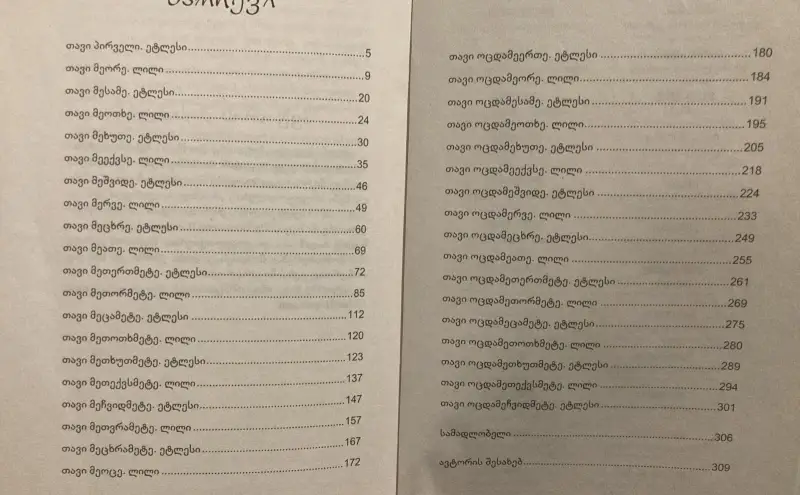 სარჩევი
თავი პირველი. ეტლესი 5
თავი მეორე. ლილი 9
თავი მესამე. ეტლესი 20
თავი მეოთხე. ლილი 24
თავი მეხუთე. ეტლესი 30
თავი მეექვსე. ლილი 35
თავი მეშვიდე. ეტლესი 46
თავი მერვე. ლილი 49
თავი მეცხრე. ეტლესი 60
თავი მეათე. ლილი 69
თავი მეთერთმეტე. ეტლესი 72
თავი მეთორმეტე. ლილი 85
თავი მეცამეტე. ეტლესი 112
თავი მეთოთხმეტე. ლილი 120
თავი მეთხუთმეტე. ეტლესი 123
თავი მეთექვსმეტე. ლილი 137
თავი მეჩვიდმეტე. ეტლესი 147
თავი მეთვრამეტე. ლილი 157
თავი მეცხრამეტე. ეტლესი 167
თავი მეოცე. ლილი 172
თავი ოცდამეერთე. ეტლესი 180
თავი ოცდამეორე. ლილი 184
თავი ოცდამესამე. ეტლესი 191
თავი ოცდამეოთხე. ლილი 195
თავი ოცდამეხუთე. ეტლესი 205
თავი ოცდამეექვსე. ლილი 218
თავი ოცდამეშვიდე. ეტლესი 224
თავი ოცდამერვე. ლილი 233
თავი ოცდამეცხრე. ეტლესი 249
თავი ოცდამეათე. ლილი 255
თავი ოცდამეთერთმეტე. ეტლესი 261
თავი ოცდამეთორმეტე. ლილი 269
თავი ოცდამეცამეტე. ეტლესი 275
თავი ოცდამეთოთხმეტე. ლილი 280
თავი ოცდამეთხუთმეტე. ეტლესი 289
თავი ოცდამეთექვსმეტე. ლილი 294
თავი ოცდამეჩვიდმეტე. ეტლესი 301
სამადლობელი 306
ავტორის შესახებ 309